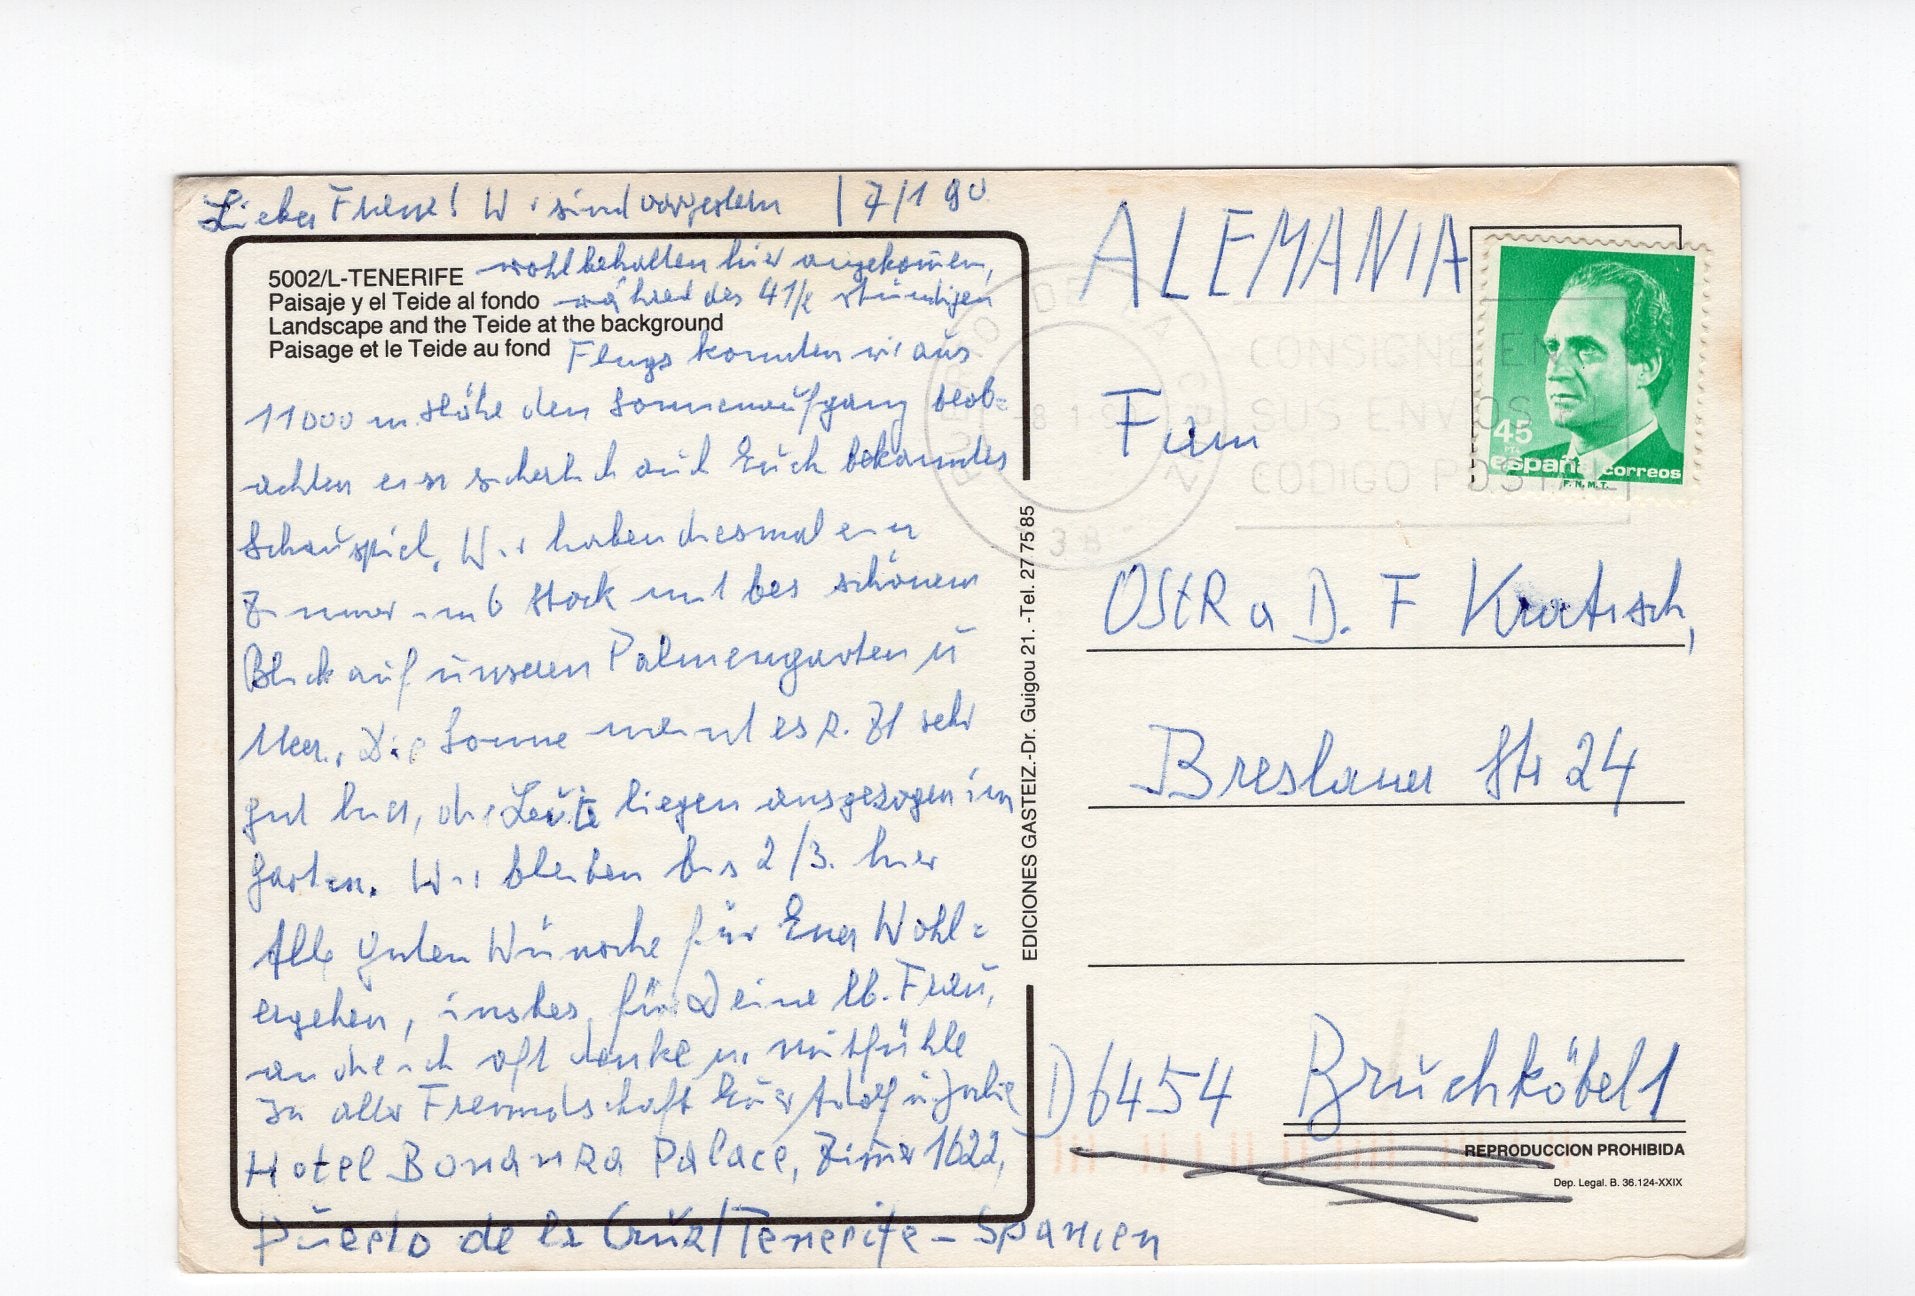 Lieber Franz! Wir sind vorgestern | 7/1 90
wohlbehalten hier angekommen,
5002/L-TENERIFE
Paisaje y el Teide al fondo
Landscape and the Teide at the background
Paisage et le Teide au fond
während des 4 1/2 stündigen
Flugs konnten wir aus
11000 m Höhe den Sonnenaufgang beob=
achten ein sicherlich auch Euch bekanntes
Schauspiel. Wir haben diesmal ein
Zimmer im 6 Stock mit bes schönem
Blick auf unseren Palmengarten u
Meer. Die Sonne meint es z. Zt sehr
gut hier, die Leute liegen ausgezogen im
Garten. Wir bleiben bis 2/3. hier
Alle guten Wünsche für Euer Wohl=
ergehen, insbes. für Deine lb. Frau,
an die ich oft denke u. mitfühle
In alter Freundschaft Euer Adolf u
Hotel Bonanza Palace, Zimmer 1622,
Puerto de la Cruz/Tenerife - Spanien
EDICIONES GASTEIZ.-Dr. Guigou 21. -Tel. 27 75 85
ALEMANIA
PUERTO DE LA CRUZ
-8.1.90
38
CONSIGNE EN
SUS ENVIOS EL
CODIGO POSTAL
45
PTA
españa correos
F.N.M.T.
Fam
OStR a D. F Kratisch,
Breslauer Str 24
D 6454 Bruchköbel 1
REPRODUCCION PROHIBIDA
Dep. Legal. B. 36.124-XXIX